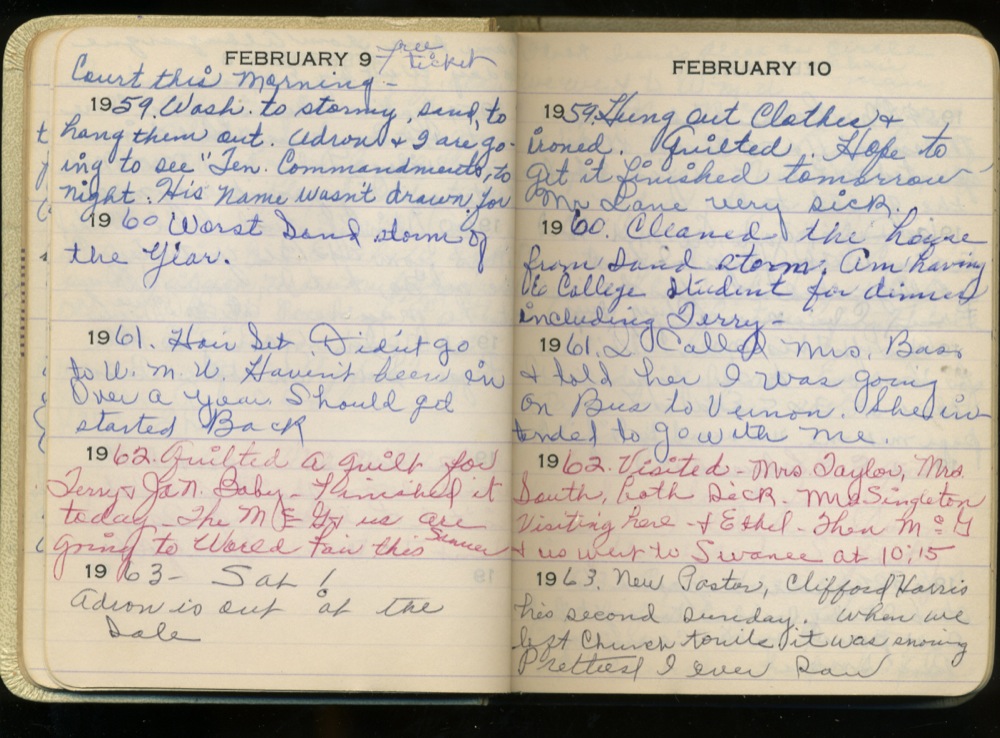 FEBRUARY 9 - free
ticket
Court this Morning -
1959. Wash. to stormy, sand, to
hang them out. Adron & I are go-
ing to see "Ten Commandments, to
night. His Name wasn't drawn for
1960 Worst Sand storm of
the Year.
1961. Hair Set. Didn't go
to W. M. U. Haven't been in
Over a year. Should get
started Back
1962. Quilted a quilt for
Terry & Jan. Baby - Finished it
today - The & us are
going to World Fair this Summer
1963 - Sat !
Adron is out at the
Sale
FEBRUARY 10
1959. Hung out Clothes &
ironed. Quilted. Hope to
get it finished tomorrow
Mr Lane very sick.
1960. Cleaned the house
from Sand storm. Am having
College Student for dinner
including Terry -
1961. I Called Mrs. Bass
& told her I was going
on Bus to Vernon. She in
tended to go with me.
1962. Visited - Mrs Taylor, Mrs
South, both Sick - Mrs Singleton
Visiting here - & Ethel - Then Mc G
& us went to Swanee at 10:15
1963. New Pastor, Clifford Harris
his second Sunday. When we
left Church tonite it was snowing
Prettiest I ever Saw